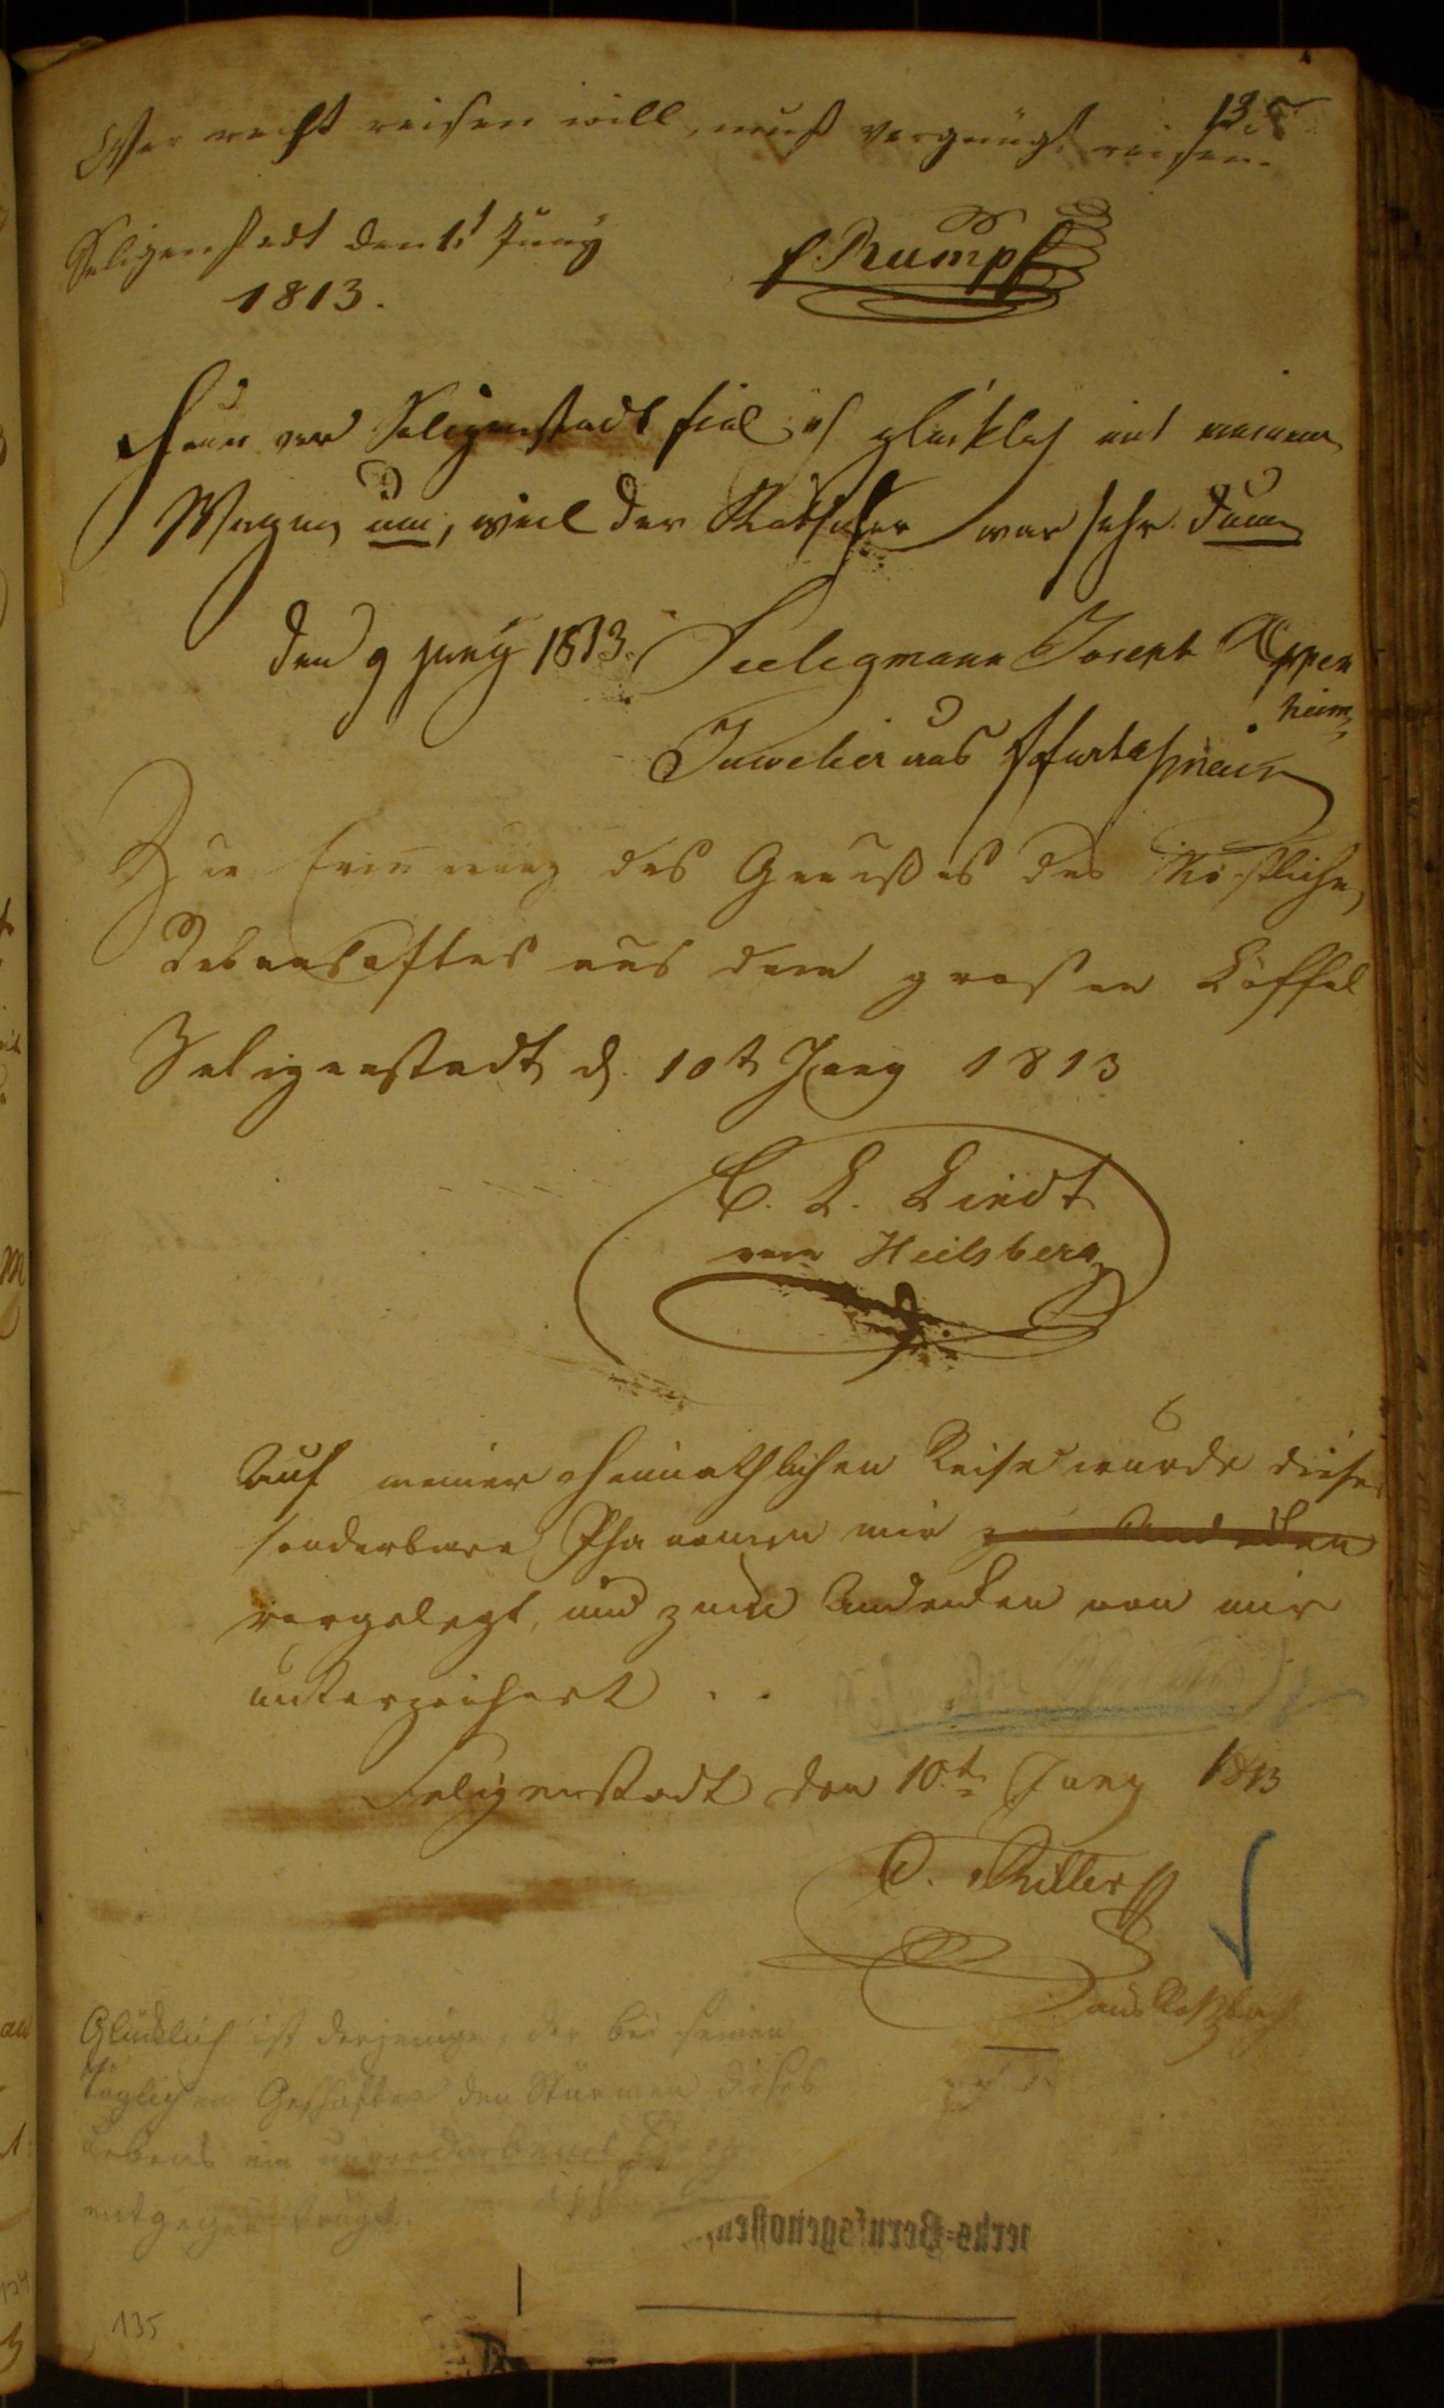 135
Wer recht reisen will, muß vergnügt reisen.
Seligenstadt den 1t Juny
1813.
f. Rumpf
vor Seligenstadt fiel ich glücklich mit meinem
Wagen um, weil der Kutscher war sehr dum
den 9 juny 1813. Seeligmann Joseph Oppen
heim
Juwelier aus Ffurtamain
Zur Erinnerung des Genußes des Köstlichen
Rebensaftes aus dem grosen Löffel
Seligenstadt d. 10t Juny 1813
C. L. Lindt
von Heilsberg
Auf meiner heimathlichen Reise wurde diese
sonderbare Phanomen mir zum Andenken
vorgelegt, und zum Andenken von mir
unterzeichnet . .
Seligenstadt den 10.t Juny 1813
C. Ritter
aus
Glücklich ist derjenige, der bei seinen
Täglichen Geschäften den Stürmen dieses
Lebens ein unverdorbenes Herz
entgegen trägt.
werks-Berufsgenossen
135